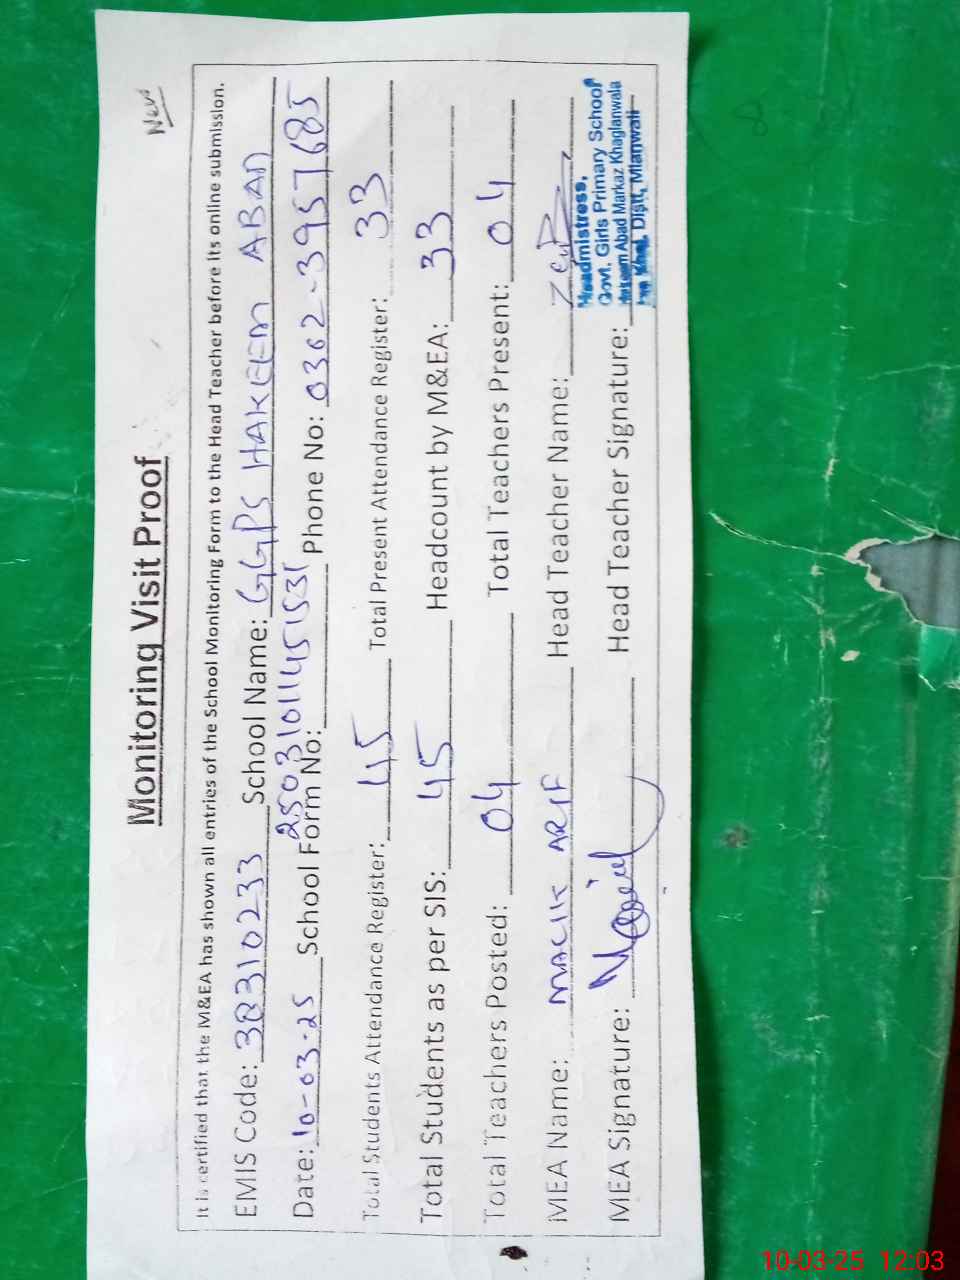 New
Monitoring Visit Proof
It is certified that the M&EA has shown all entries of the School Monitoring Form to the Head Teacher before its online submission.
EMIS Code: 38310233 School Name: GGPS HAKEEM ABAD
Date: 10-03-25 School Form No: 25031011451531 Phone No: 0302-3957685
Total Students Attendance Register: 45 Total Present Attendance Register: 33
Total Students as per SIS: 45 Headcount by M&EA: 33
Total Teachers Posted: 04 Total Teachers Present: 04
MEA Name: MALIK ARIF Head Teacher Name:
MEA Signature: Head Teacher Signature:
Headmistress,
Govt. Girls Primary School
Hakeem Abad Markaz Khaglanwala
Khel, Distt, Mianwali
10-03-25 12:03